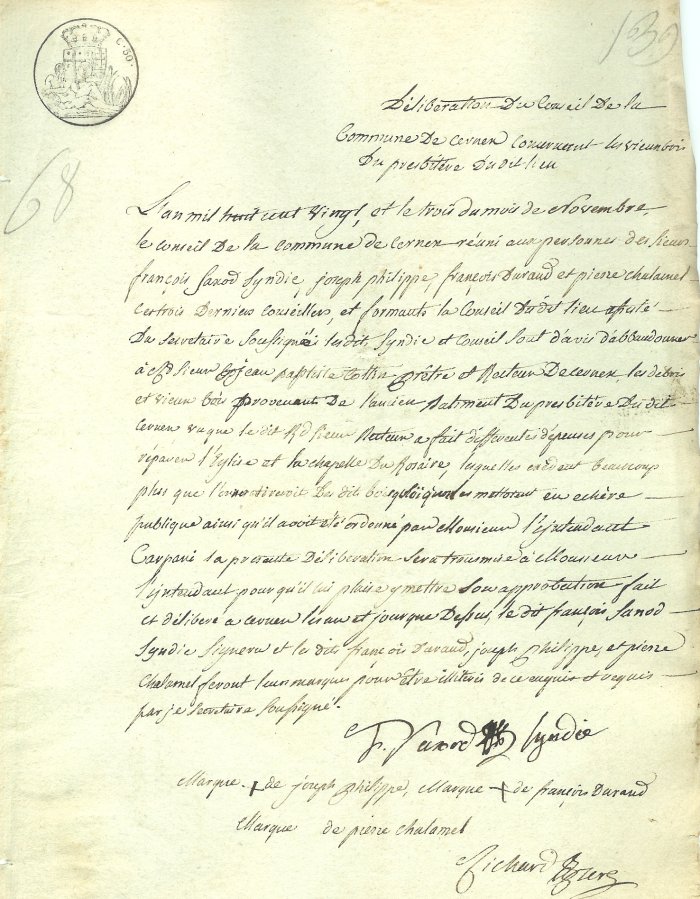 C. 50.
139
68
Déliberation Du Conseil De la
Commune De Cernex Concernent les vieux bois
Du presbitère Du dit lieu
L'an mil huit cent vingt, et le trois du mois de Novembre,
le Conseil De la Commune de Cernex réuni aux personnes des sieurs
françois Sanod Syndic, joseph philippe, francois Durand et pierre chalamel
Ces trois Derniers Conseillers, et formants le Conseil Du dit lieu
Du Secretaire Soussigné les dit Syndic et Conseil sont d'avis d'abbandonner
à Rd sieur jean baptiste prêtre et Recteur De Cernex, les debris
et vieux bois provenant De l'ancien Batiment Du presbitère Du dit
Cernex vu que le dit Rd sieur Recteur a fait differente dépenses pour
réparer l'Eglise et la chapelle Du Rosaire, lesquelles excedent beaucoup
plus que l'on Des dits bois les mettant en echère
publique ainsi qu'il avoit été ordonné par Monsieur l'jntendant
Carpani la presente Déliberation Sera transmise à Monsieur
l'jntendant pour qu'il lui plaise y mettre Son approbation fait
et déliberé a Cernex les an et jour que Dessus, le dit françois Sanod
Syndic Signera et les dits francois Durand, joseph philippe, et pierre
Chalamel feront leurs marques pour Etre illiterés de ce enquis et requis
par je Secretaire Soussigné.
f. Sanod Syndic
Marque + de joseph philippe, Marque + de françois Durand
Marque de pierre chalamel
Richard